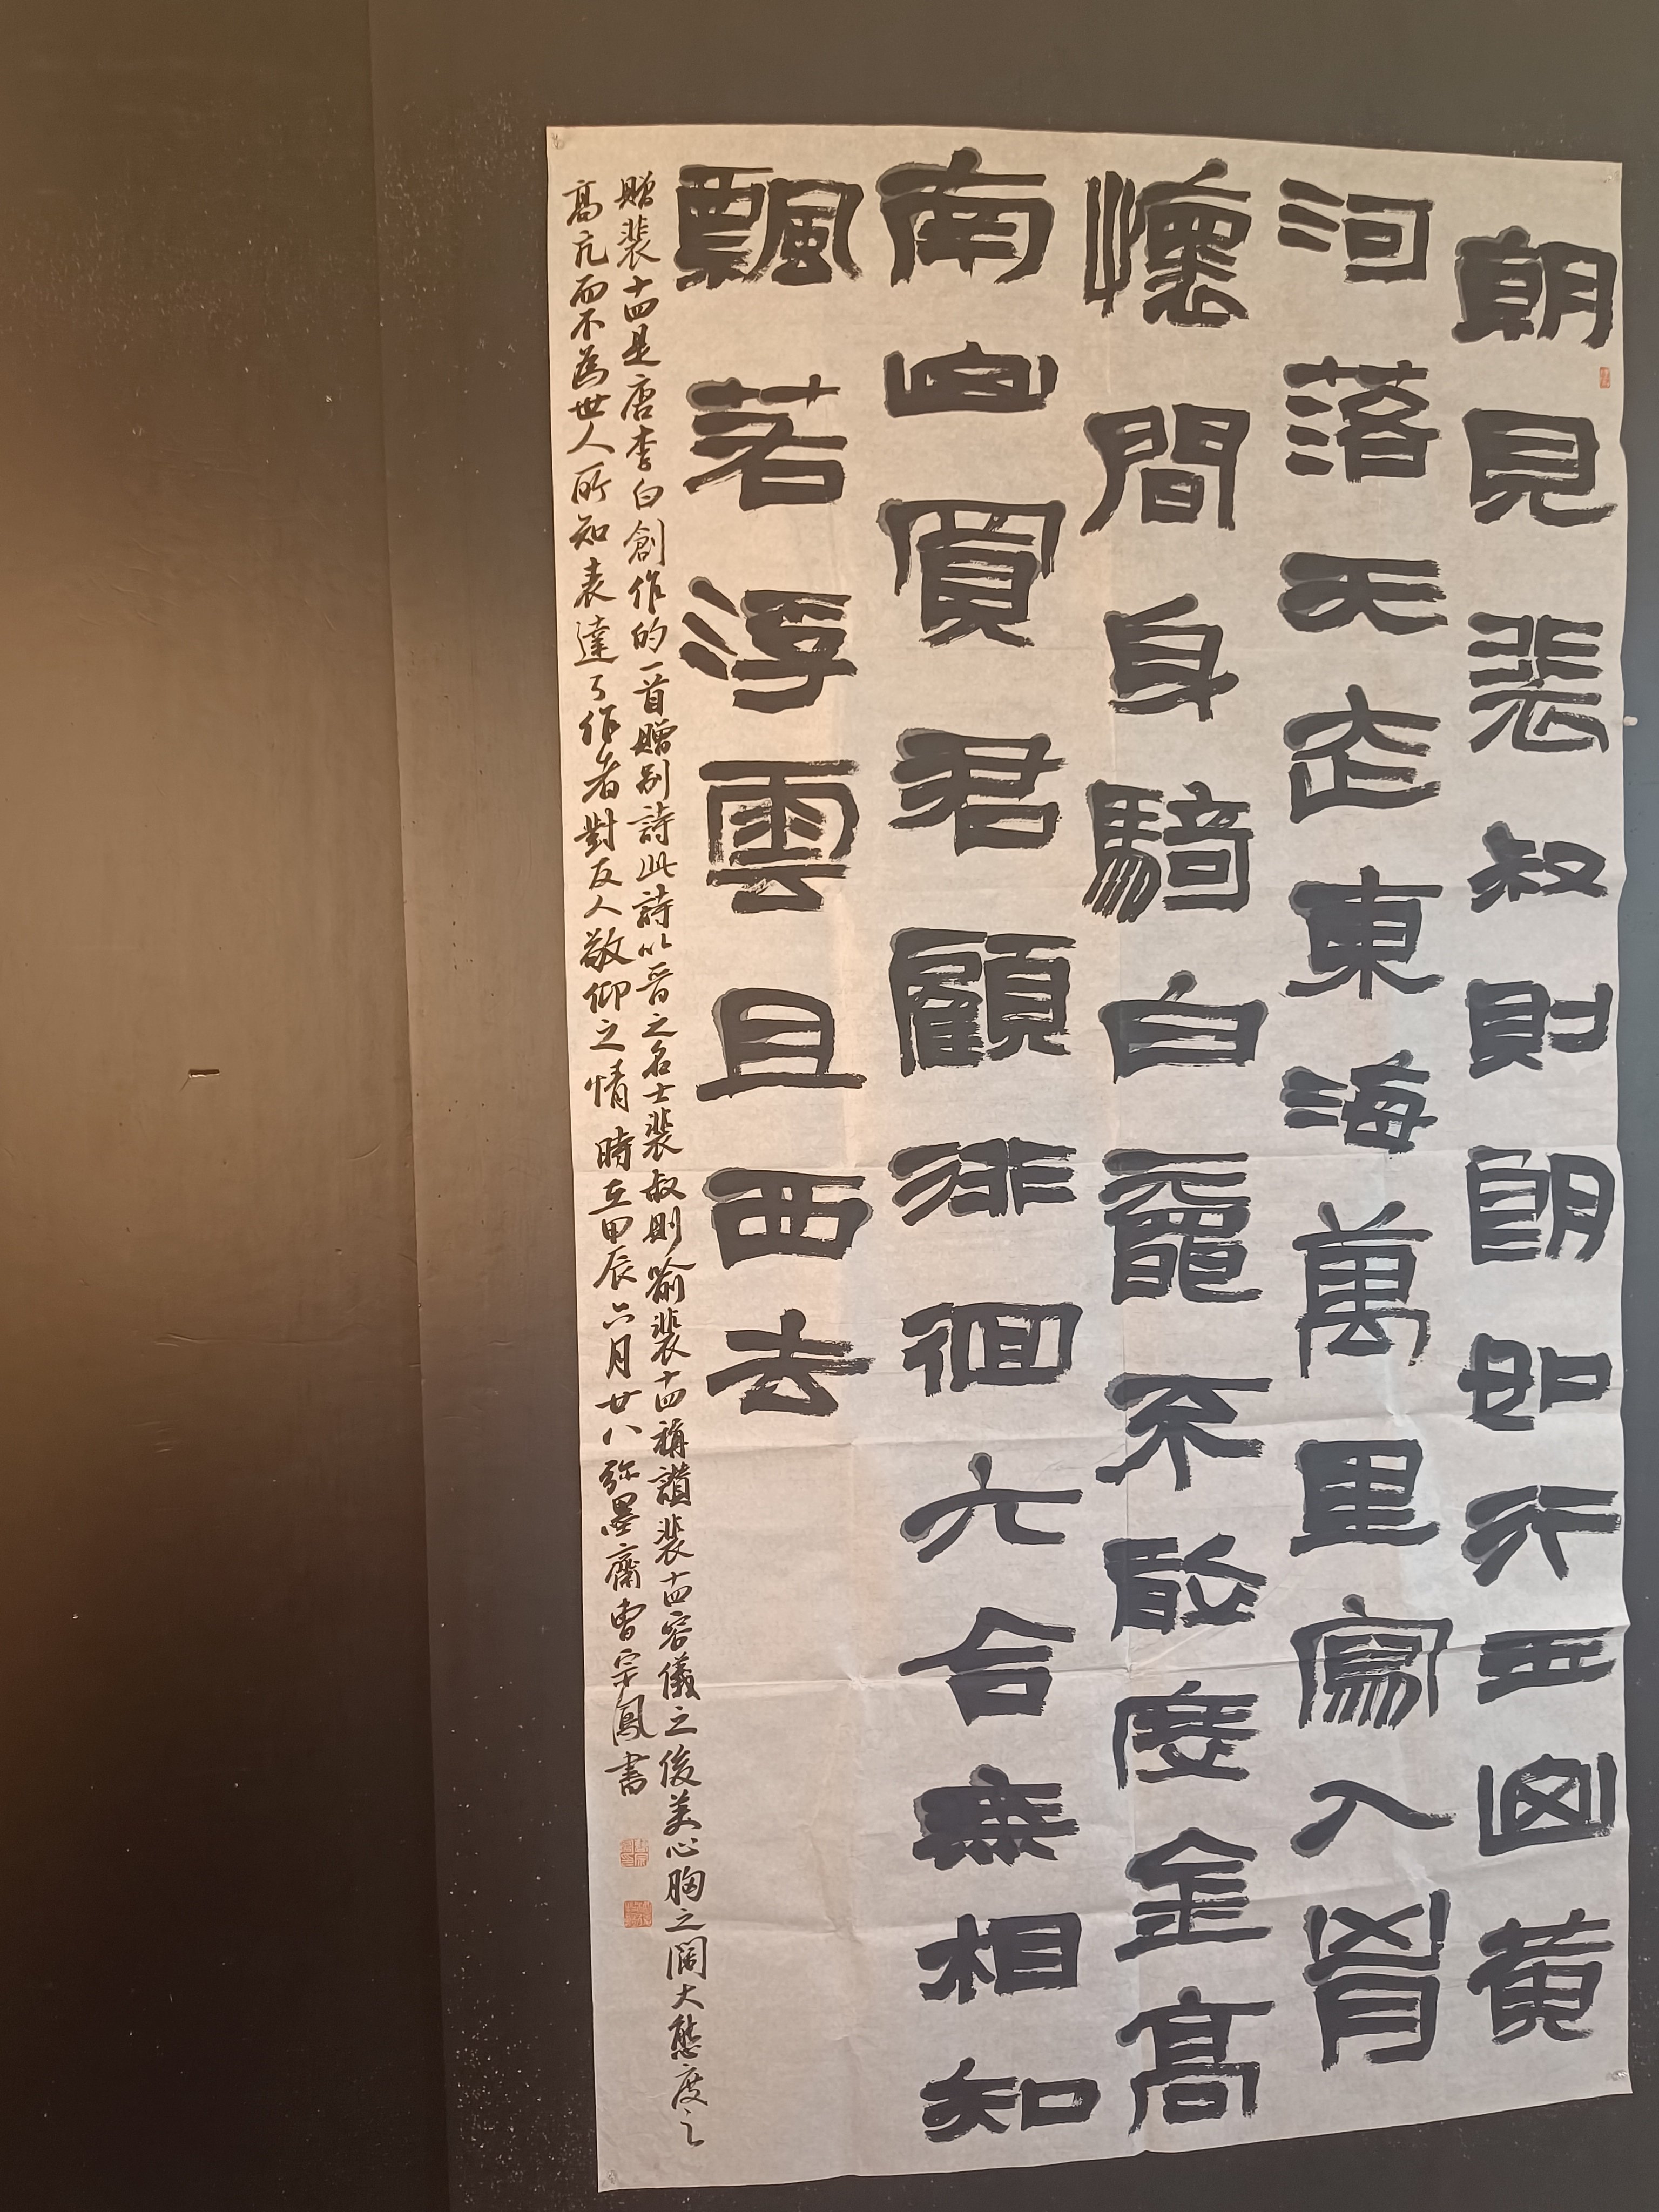 朝見裴叔則朗如行玉山黄
河落天走東海萬里寫入胷
懷間身騎白黿不敢度金高
南山買君顧徘徊六合無相知
飄若浮雲且西去
贈裴十四是唐李白創作的一首贈别詩此詩以晉之名士裴叔則喻裴十四稱讃裴十四容儀之俊美心胸之闊大態度之
高亢而不為世人所知表達了作者對友人敬仰之情 時在甲辰六月廿八弥墨齋曹宗鳳書